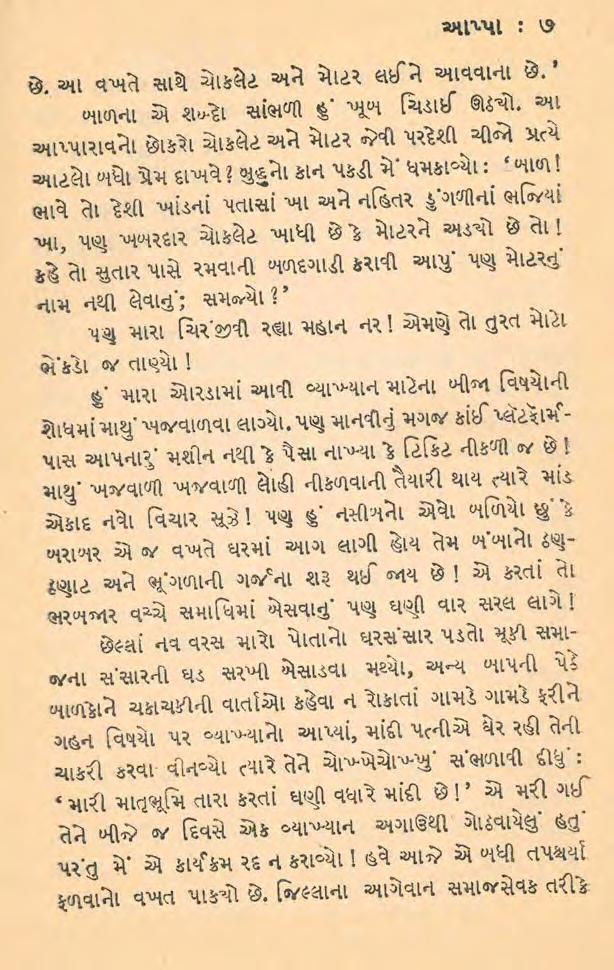 આપ્પા : ૭
છે. આ વખતે સાથે ચોકલેટ અને મોટર લઈને આવવાના છે.'
બાળના એ શબ્દો સાંભળી હું ખૂબ ચિડાઈ ઊઠ્યો. આ
આપ્પારાવનો છોકરો ચોકલેટ અને મોટર જેવી પરદેશી ચીજો પ્રત્યે
આટલો બધો પ્રેમ દાખવે? બુદ્ધુનો કાન પકડી મેં ધમકાવ્યો : 'બાળ!
ભાવે તો દેશી ખાંડનાં પતાસાં ખા અને નહિતર ડુંગળીનાં ભજિયાં
ખા, પણ ખબરદાર ચોકલેટ ખાધી છે કે મોટરને અડ્યો છે તો!
કહે તો સુતાર પાસે રમવાની બળદગાડી કરાવી આપું પણ મોટરનું
નામ નથી લેવાનું; સમજ્યો?'
પણ મારા ચિરંજીવી રહ્યા મહાન નર! એમણે તો તુરત મોટો
ભેંકડો જ તાણ્યો!
હું મારા ઓરડામાં આવી વ્યાખ્યાન માટેના બીજા વિષયોની
શોધમાં માથું ખજવાળવા લાગ્યો. પણ માનવીનું મગજ કાંઈ પ્લૅટફૉર્મ-
પાસ આપનારું મશીન નથી કે પૈસા નાખ્યા કે ટિકિટ નીકળી જ છે!
માથું ખજવાળી ખજવાળી લોહી નીકળવાની તૈયારી થાય ત્યારે માંડ
એકાદ નવો વિચાર સૂઝે! પણ હું નસીબનો એવો બળિયો છું કે
બરાબર એ જ વખતે ઘરમાં આગ લાગી હોય તેમ બંબાનો ઠણ-
ઠણાટ અને ભૂંગળાની ગર્જના શરૂ થઈ જાય છે! એ કરતાં તો
ભરબજાર વચ્ચે સમાધિમાં બેસવાનું પણ ઘણી વાર સરલ લાગે!
છેલ્લાં નવ વરસ મારો પોતાનો ઘરસંસાર પડતો મૂકી સમા-
જના સંસારની ઘડ સરખી બેસાડવા મથ્યો, અન્ય બાપની પેઠે
બાળકોને ચકાચકીની વાર્તાઓ કહેવા ન રોકાતાં ગામડે ગામડે ફરીને
ગહન વિષયો પર વ્યાખ્યાનો આપ્યાં, માંદી પત્નીએ ઘેર રહી તેની
ચાકરી કરવા વીનવ્યો ત્યારે તેને ચોખ્ખેચોખ્ખું સંભળાવી દીધું :
'મારી માતૃભૂમિ તારા કરતાં ઘણી વધારે માંદી છે!' એ મરી ગઈ
તેને બીજે જ દિવસે એક વ્યાખ્યાન અગાઉથી ગોઠવાયેલું હતું
પરંતુ મેં એ કાર્યક્રમ રદ ન કરાવ્યો! હવે આજે એ બધી તપશ્ચર્યા
ફળવાનો વખત પાક્યો છે. જિલ્લાના આગેવાન સમાજસેવક તરીકે